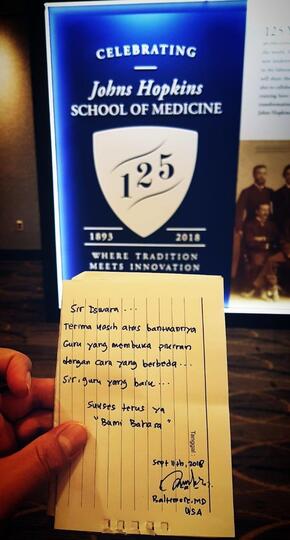 CELEBRATING
Johns Hopkins
SCHOOL OF MEDICINE
125
1893 2018
WHERE TRADITION
MEETS INNOVATION
Sir Dswara...
Terima kasih atas bantuannya
Guru yang membuka pikiran
dengan cara yang berbeda...
Sir, guru yang baik...
Sukses terus ya
"Bami Bahara"
Tanggal:
Sept 11th, 2018
Baltimore, MD
USA